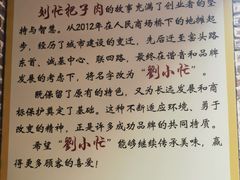 刘忙把子肉的故事充满了创业者的坚
持与智慧。从2012年在人民商场桥下的地摊起
步，经历了城市建设的变迁，先后迁至窑头路
东首、诚基中心、联四路，最终在谐音和品牌
发展的考虑下，将名字改为“劉小忙”。
既保留了原有的特色，又为长远发展和商
标保护奠定了基础。这种不断适应环境、勇于
改变的精神，正是许多成功品牌的共同特质。
希望“劉小忙”能够继续传承美味，赢
得更多顾客的喜爱！